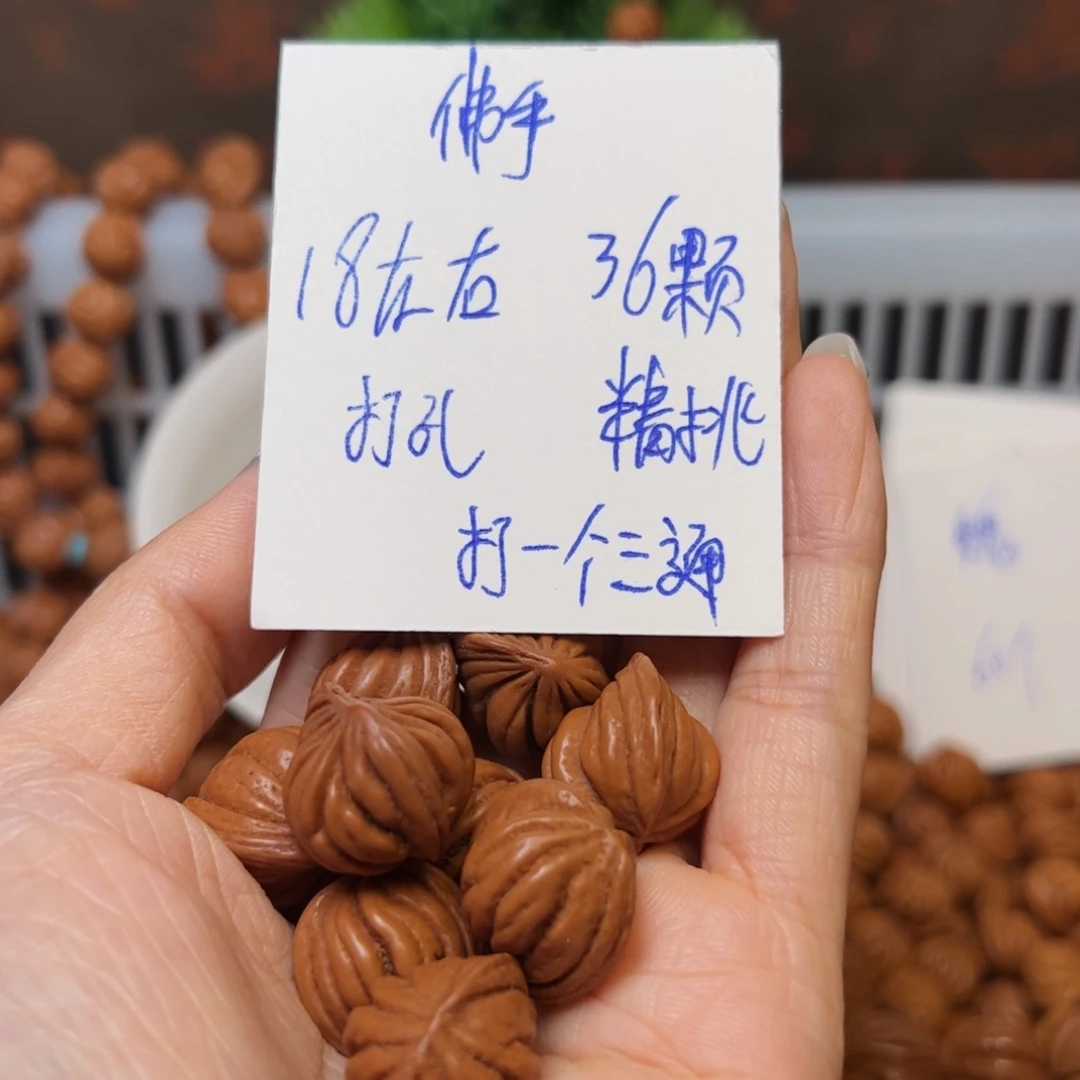 佛手
18左右 36颗
打孔 精挑
打一个三通